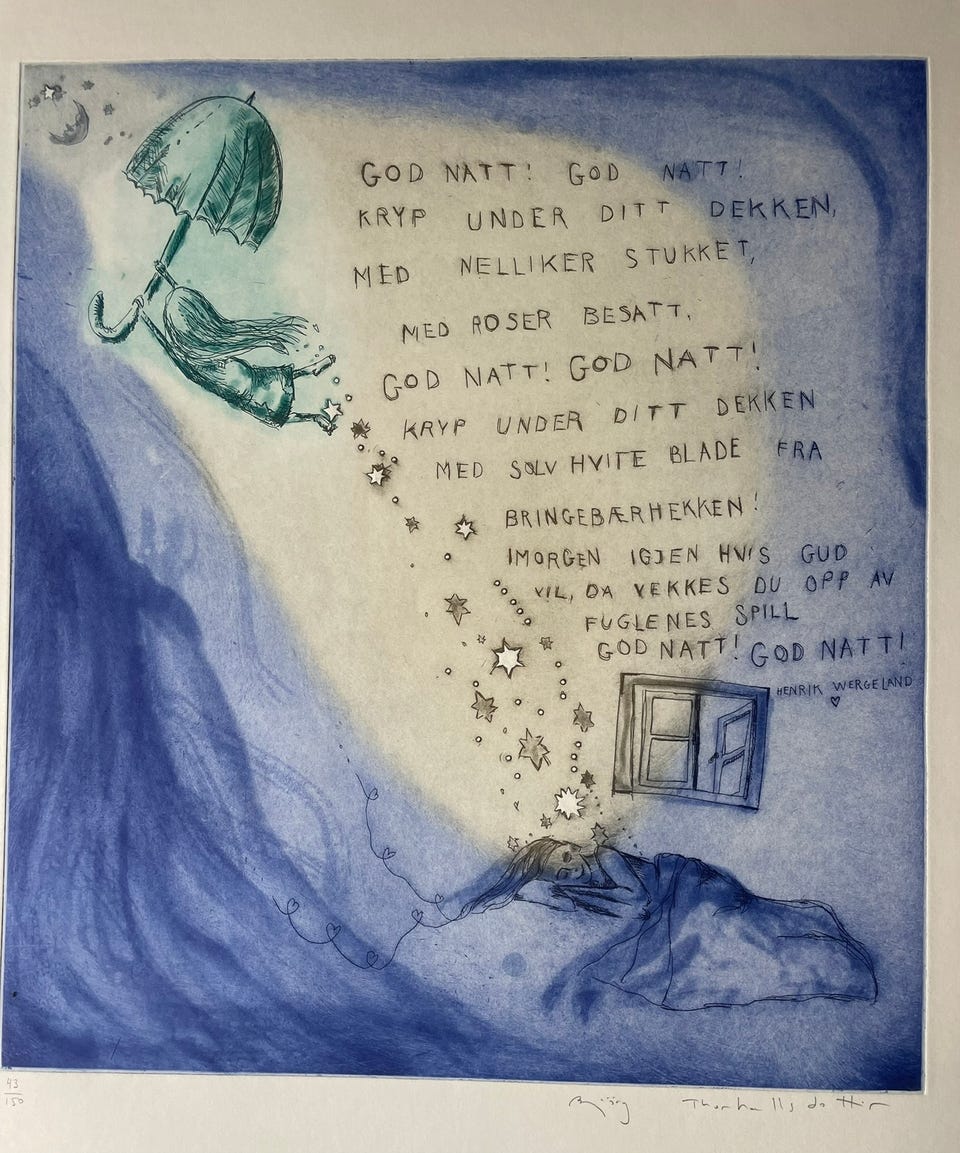 GOD NATT! GOD NATT!
KRYP UNDER DITT DEKKEN,
MED NELLIKER STUKKET,
MED ROSER BESATT,
GOD NATT! GOD NATT!
KRYP UNDER DITT DEKKEN
MED SØLVHVITE BLADE FRA
BRINGEBÆRHEKKEN!
IMORGEN IGJEN HVIS GUD
VIL, DA VEKKES DU OPP AV
FUGLENES SPILL
GOD NATT! GOD NATT!
HENRIK WERGELAND
43
150
Bjørg Thorhallsdottir